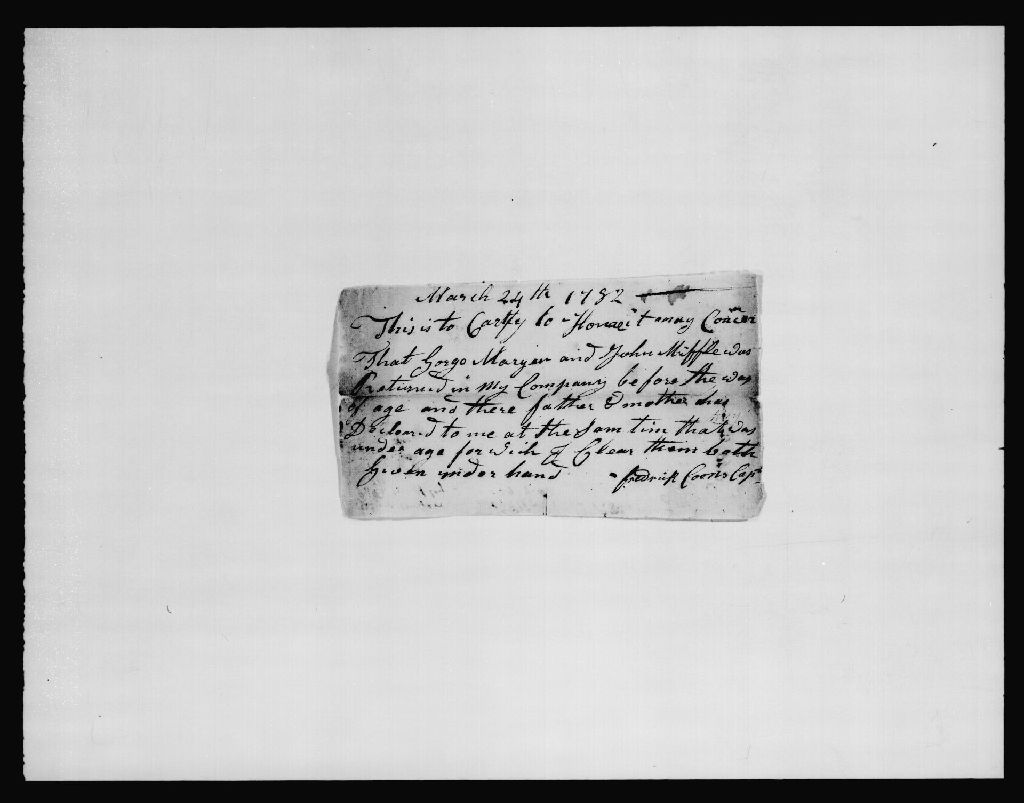 March 24th 1782
This is to Cartfy to Home it may Concarn
That Gorgo Maryer and John Miffle was
Returned in my Company before the was
of age and there father & mother has
Declared to me at the Sam tim that they was
under age for Wich I Clear them both
Given under hand fredrick Coons Capt